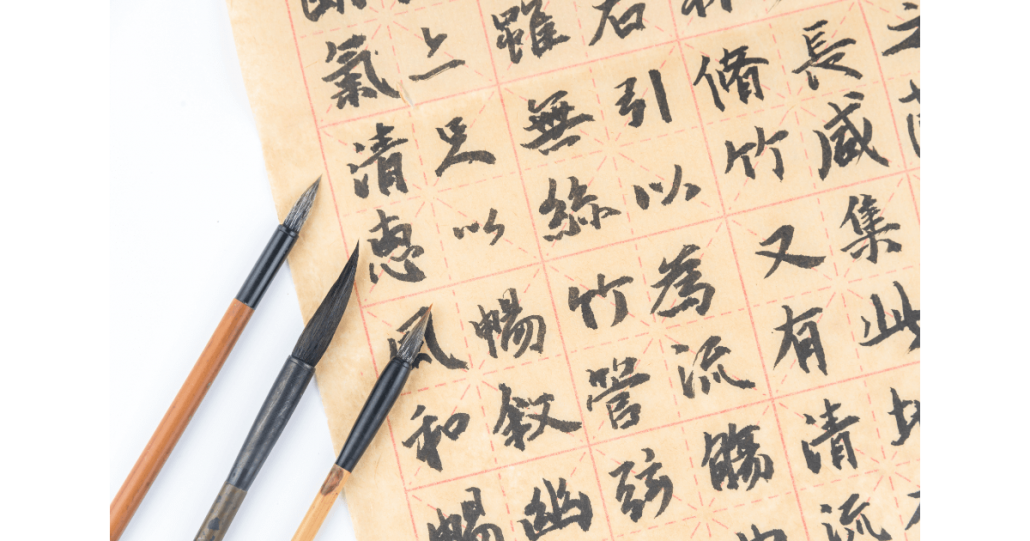 之
長咸集此地
脩竹又有清流
右引以為流觴曲
雖無絲竹管弦
亦足以暢敘幽
氣清惠風和暢